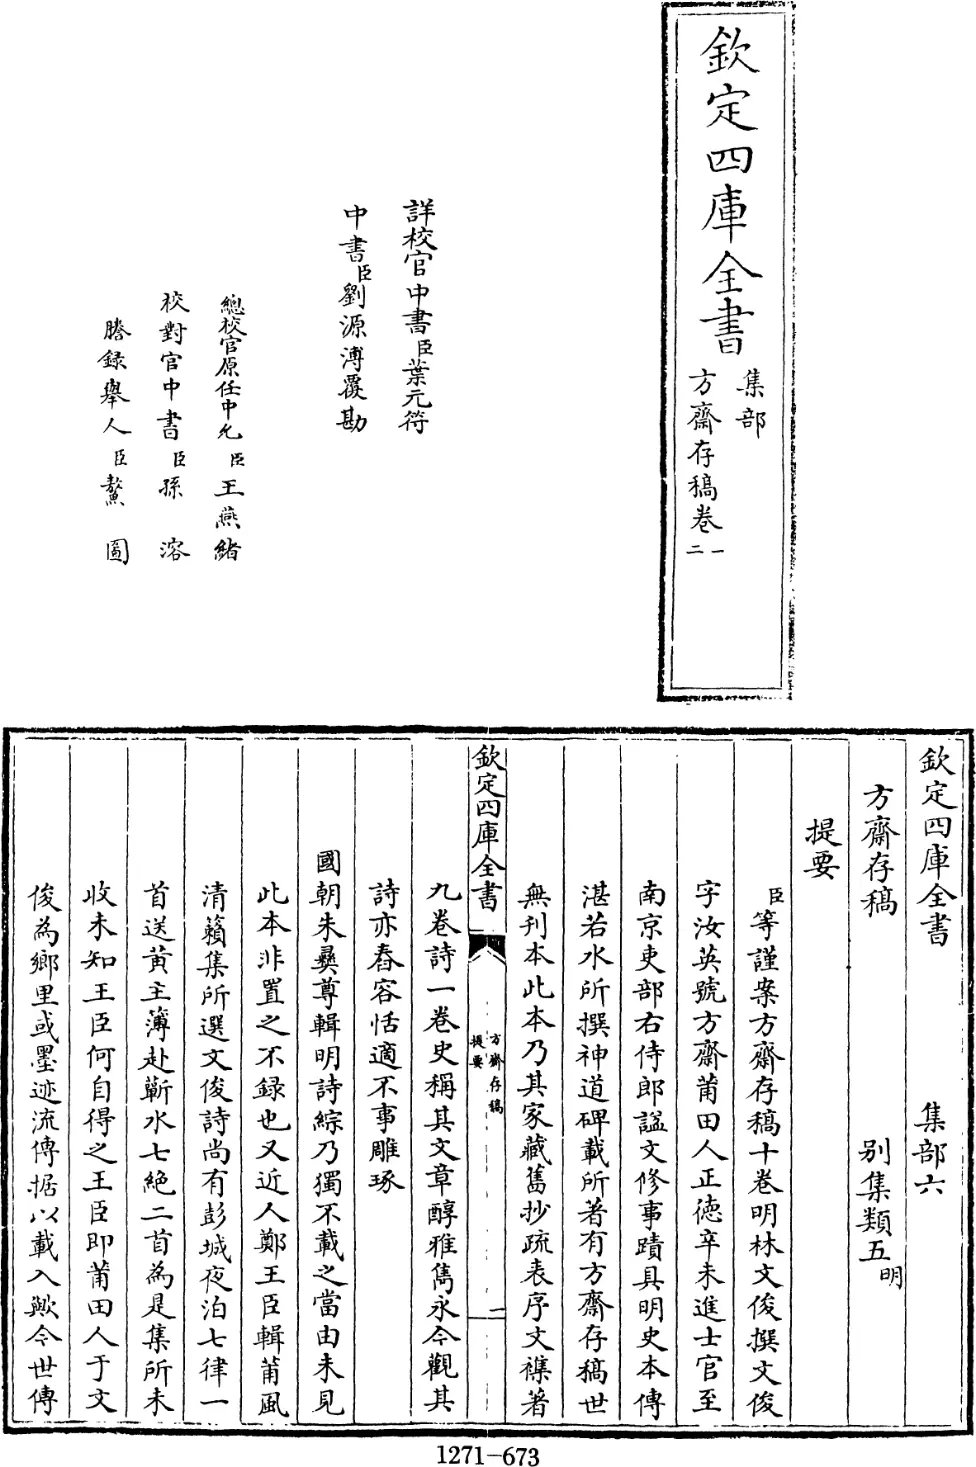 欽定四庫全書
集部
方齋存稿卷一
二
詳校官中書臣葉元符
中書臣劉源溥覆勘
總校官原任中允臣王燕緒
校對官中書臣孫溶
謄錄舉人臣鰲圖
欽定四庫全書 集部六
方齋存稿 别集類五明
提要
臣等謹案方齋存稿十卷明林文俊撰文俊
字汝英號方齋莆田人正徳辛未進士官至
南京吏部右侍郎諡文修事蹟具明史本傳
湛若水所撰神道碑載所著有方齋存稿世
無刋本此本乃其家藏舊抄疏表序文襍著
欽定四庫全書
方齋存稿
提要
一
九卷詩一卷史稱其文章醇雅雋永今觀其
詩亦舂容恬適不事雕琢
國朝朱彛尊輯明詩綜乃獨不載之當由未見
此本非置之不録也又近人鄭王臣輯莆風
清籟集所選文俊詩尚有彭城夜泊七律一
首送黄主簿赴蘄水七絶二首為是集所未
收未知王臣何自得之王臣即莆田人于文
俊為鄉里或墨迹流傳据以載入歟今世傳
1271-673